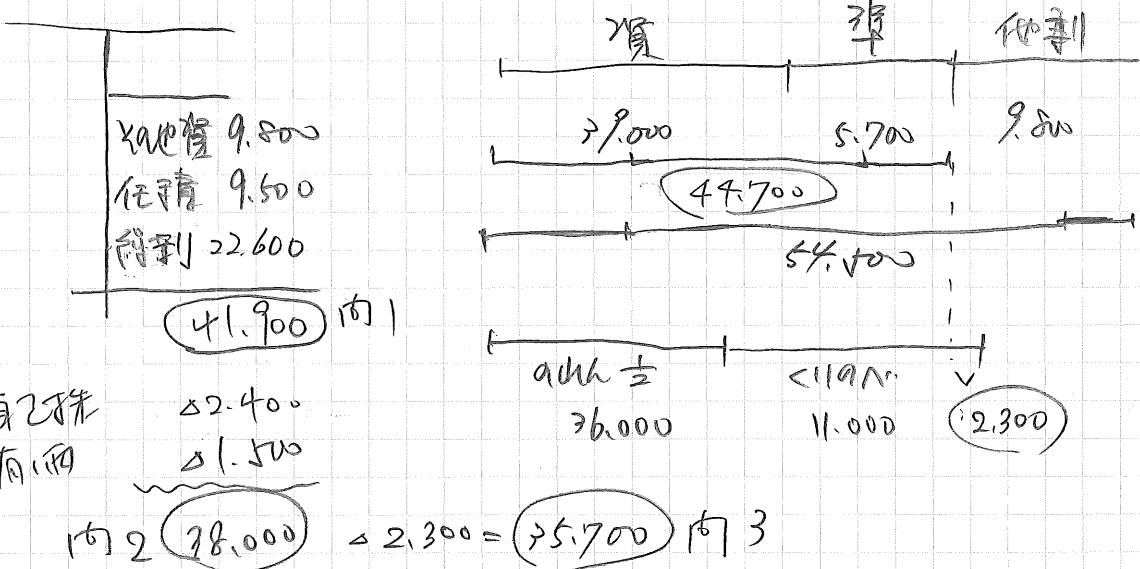 その他資 9.800
任積 9.500
繰利 22.600
41.900 問1
自己株 △2.400
有価 △1.500
問2 38.000 △2.300 = 35.700 問3
資 準 他剰
39.000 5.700 9.800
44.700
54.500
のれん 1/2 くりのべ
36.000 11.000 2.300